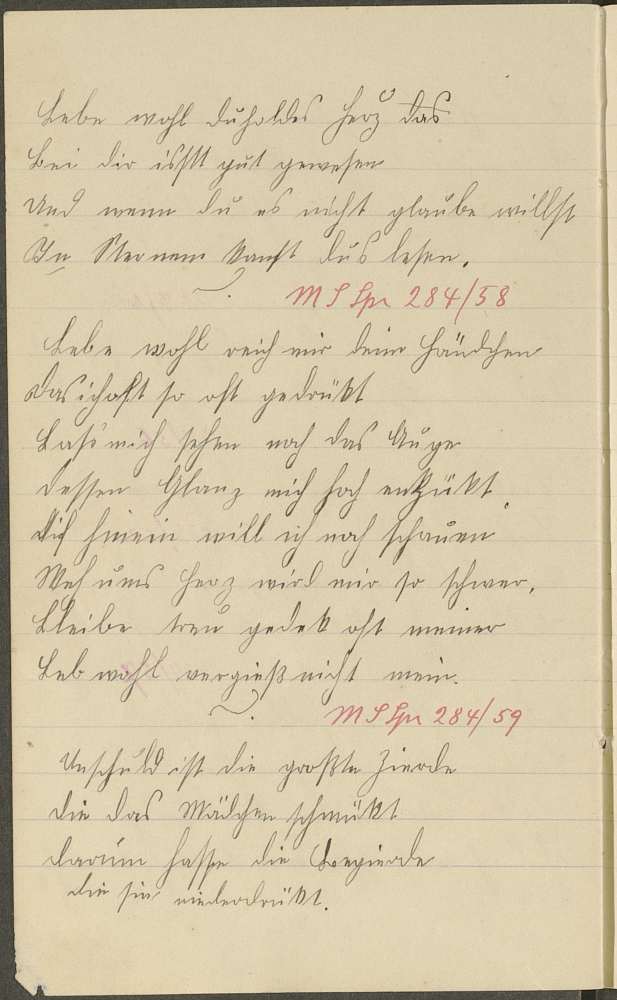 Lebe wohl du holdes Herz das
Bei dir isstt gut gewesen
Und wenn du es nicht glaube willst
In Sternem kanst dus lesen.
M S Spr 284/58
Lebe wohl reich mir deine Händchen
Das ich oft so oft gedrükt
Lass mich sehen noch das Auge
Dessen Glanz mich hoch entzükt.
Dif hinein will ich noch schauen
Weh ums Herz wird mir so schwer,
Bleibe treu gedek oft meiner
Leb wohl vergieß nicht mein.
M S Spr 284/59
Unschuld ist die großte Zierde
Die das Mädchen schmükt
Darum hasse die Begierde
die sie niederdrükt.